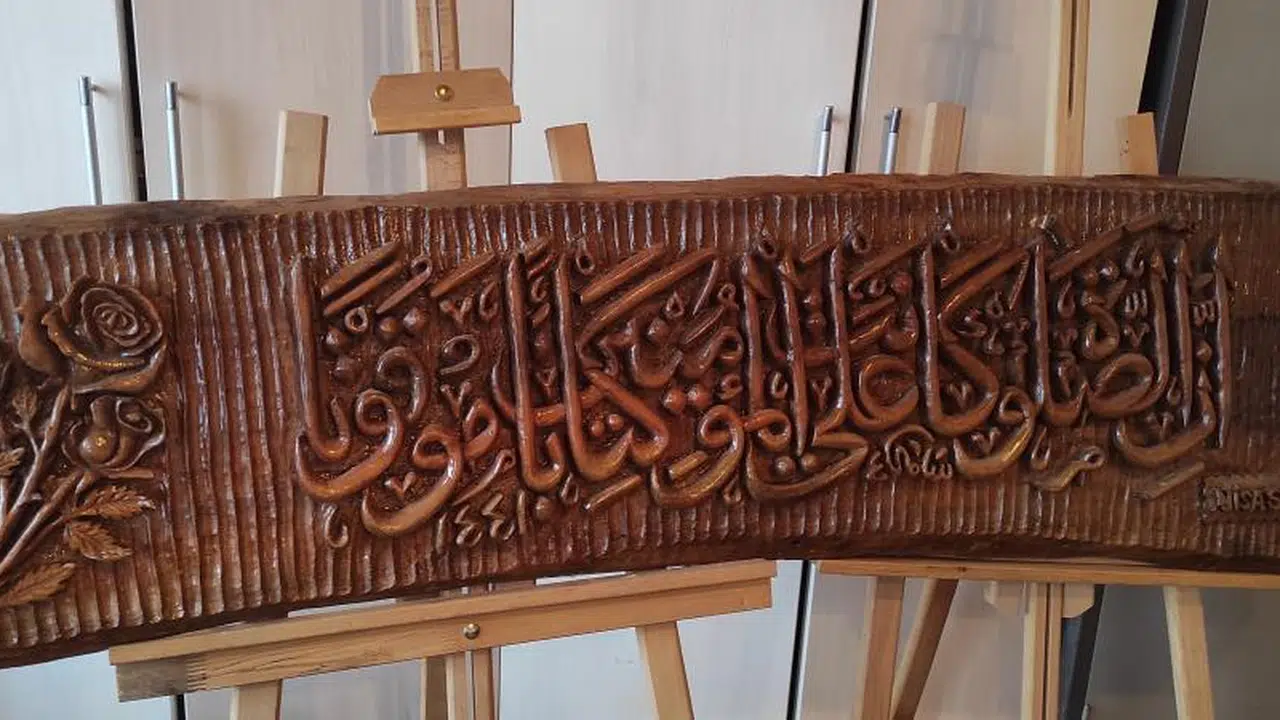 إِنَّ الصَّلَاةَ كَانَتْ عَلَى الْمُؤْمِنِينَ كِتَابًا مَوْقُوتًا
سامي
١٤٤١
NİSA S